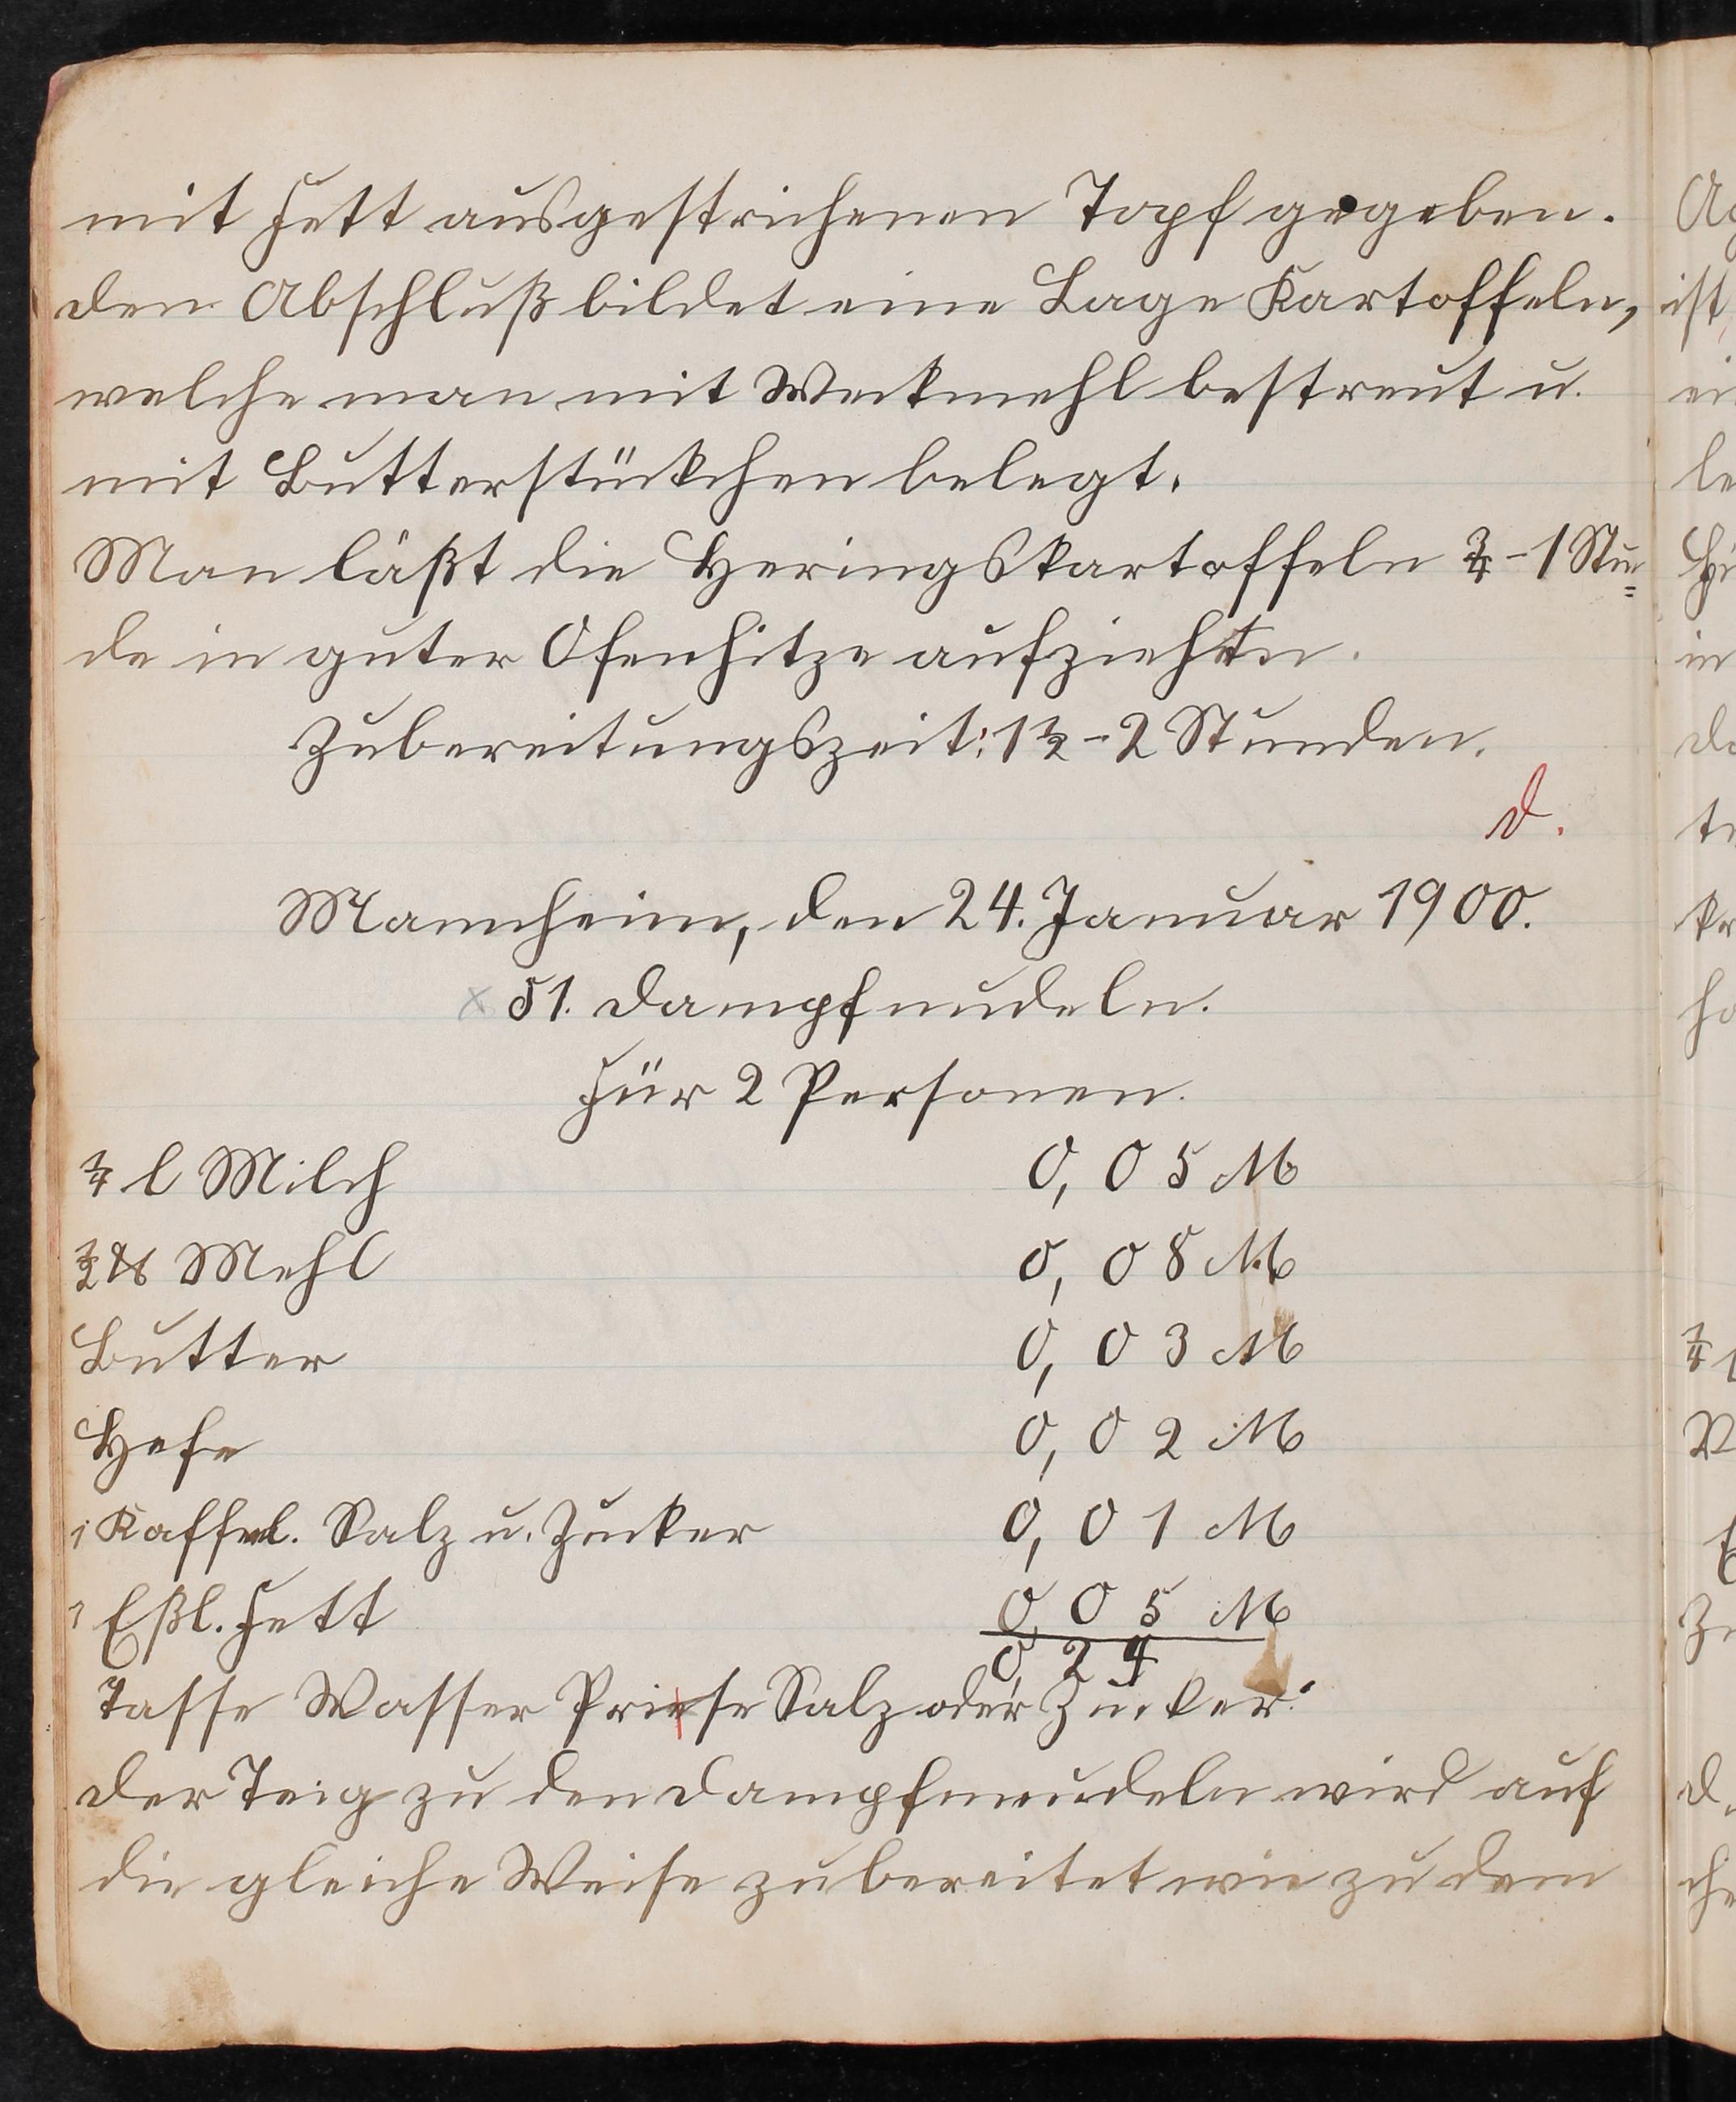 mit Fett ausgestrichenen Topf gegeben.
Den Abschluß bildet eine Lage Kartoffeln,
welche man mit Weckmehl bestreut u.
mit Butterstückchen belegt.
Man läßt die Heringskartoffeln ¾-1 Stun=
de in guter Ofenhitze aufziehen.
Zubereitungszeit: 1½-2 Stunden.
D.
Mannheim, den 24. Januar 1900.
x 51. Dampfnudeln.
Für 2 Personen.
¼ l Milch 0,05 M
½ ℔ Mehl 0,08 M
Butter 0,03 M
Hefe 0,02 M
1 Kaffeel. Salz u. Zucker 0,01 M
1 Eßl. Fett 0,05 M
0,24
Tasse Wasser Priese Salz oder Zucker.
Der Teig zu den Dampfnudeln wird auf
die gleiche Weise zubereitet wie zu dem